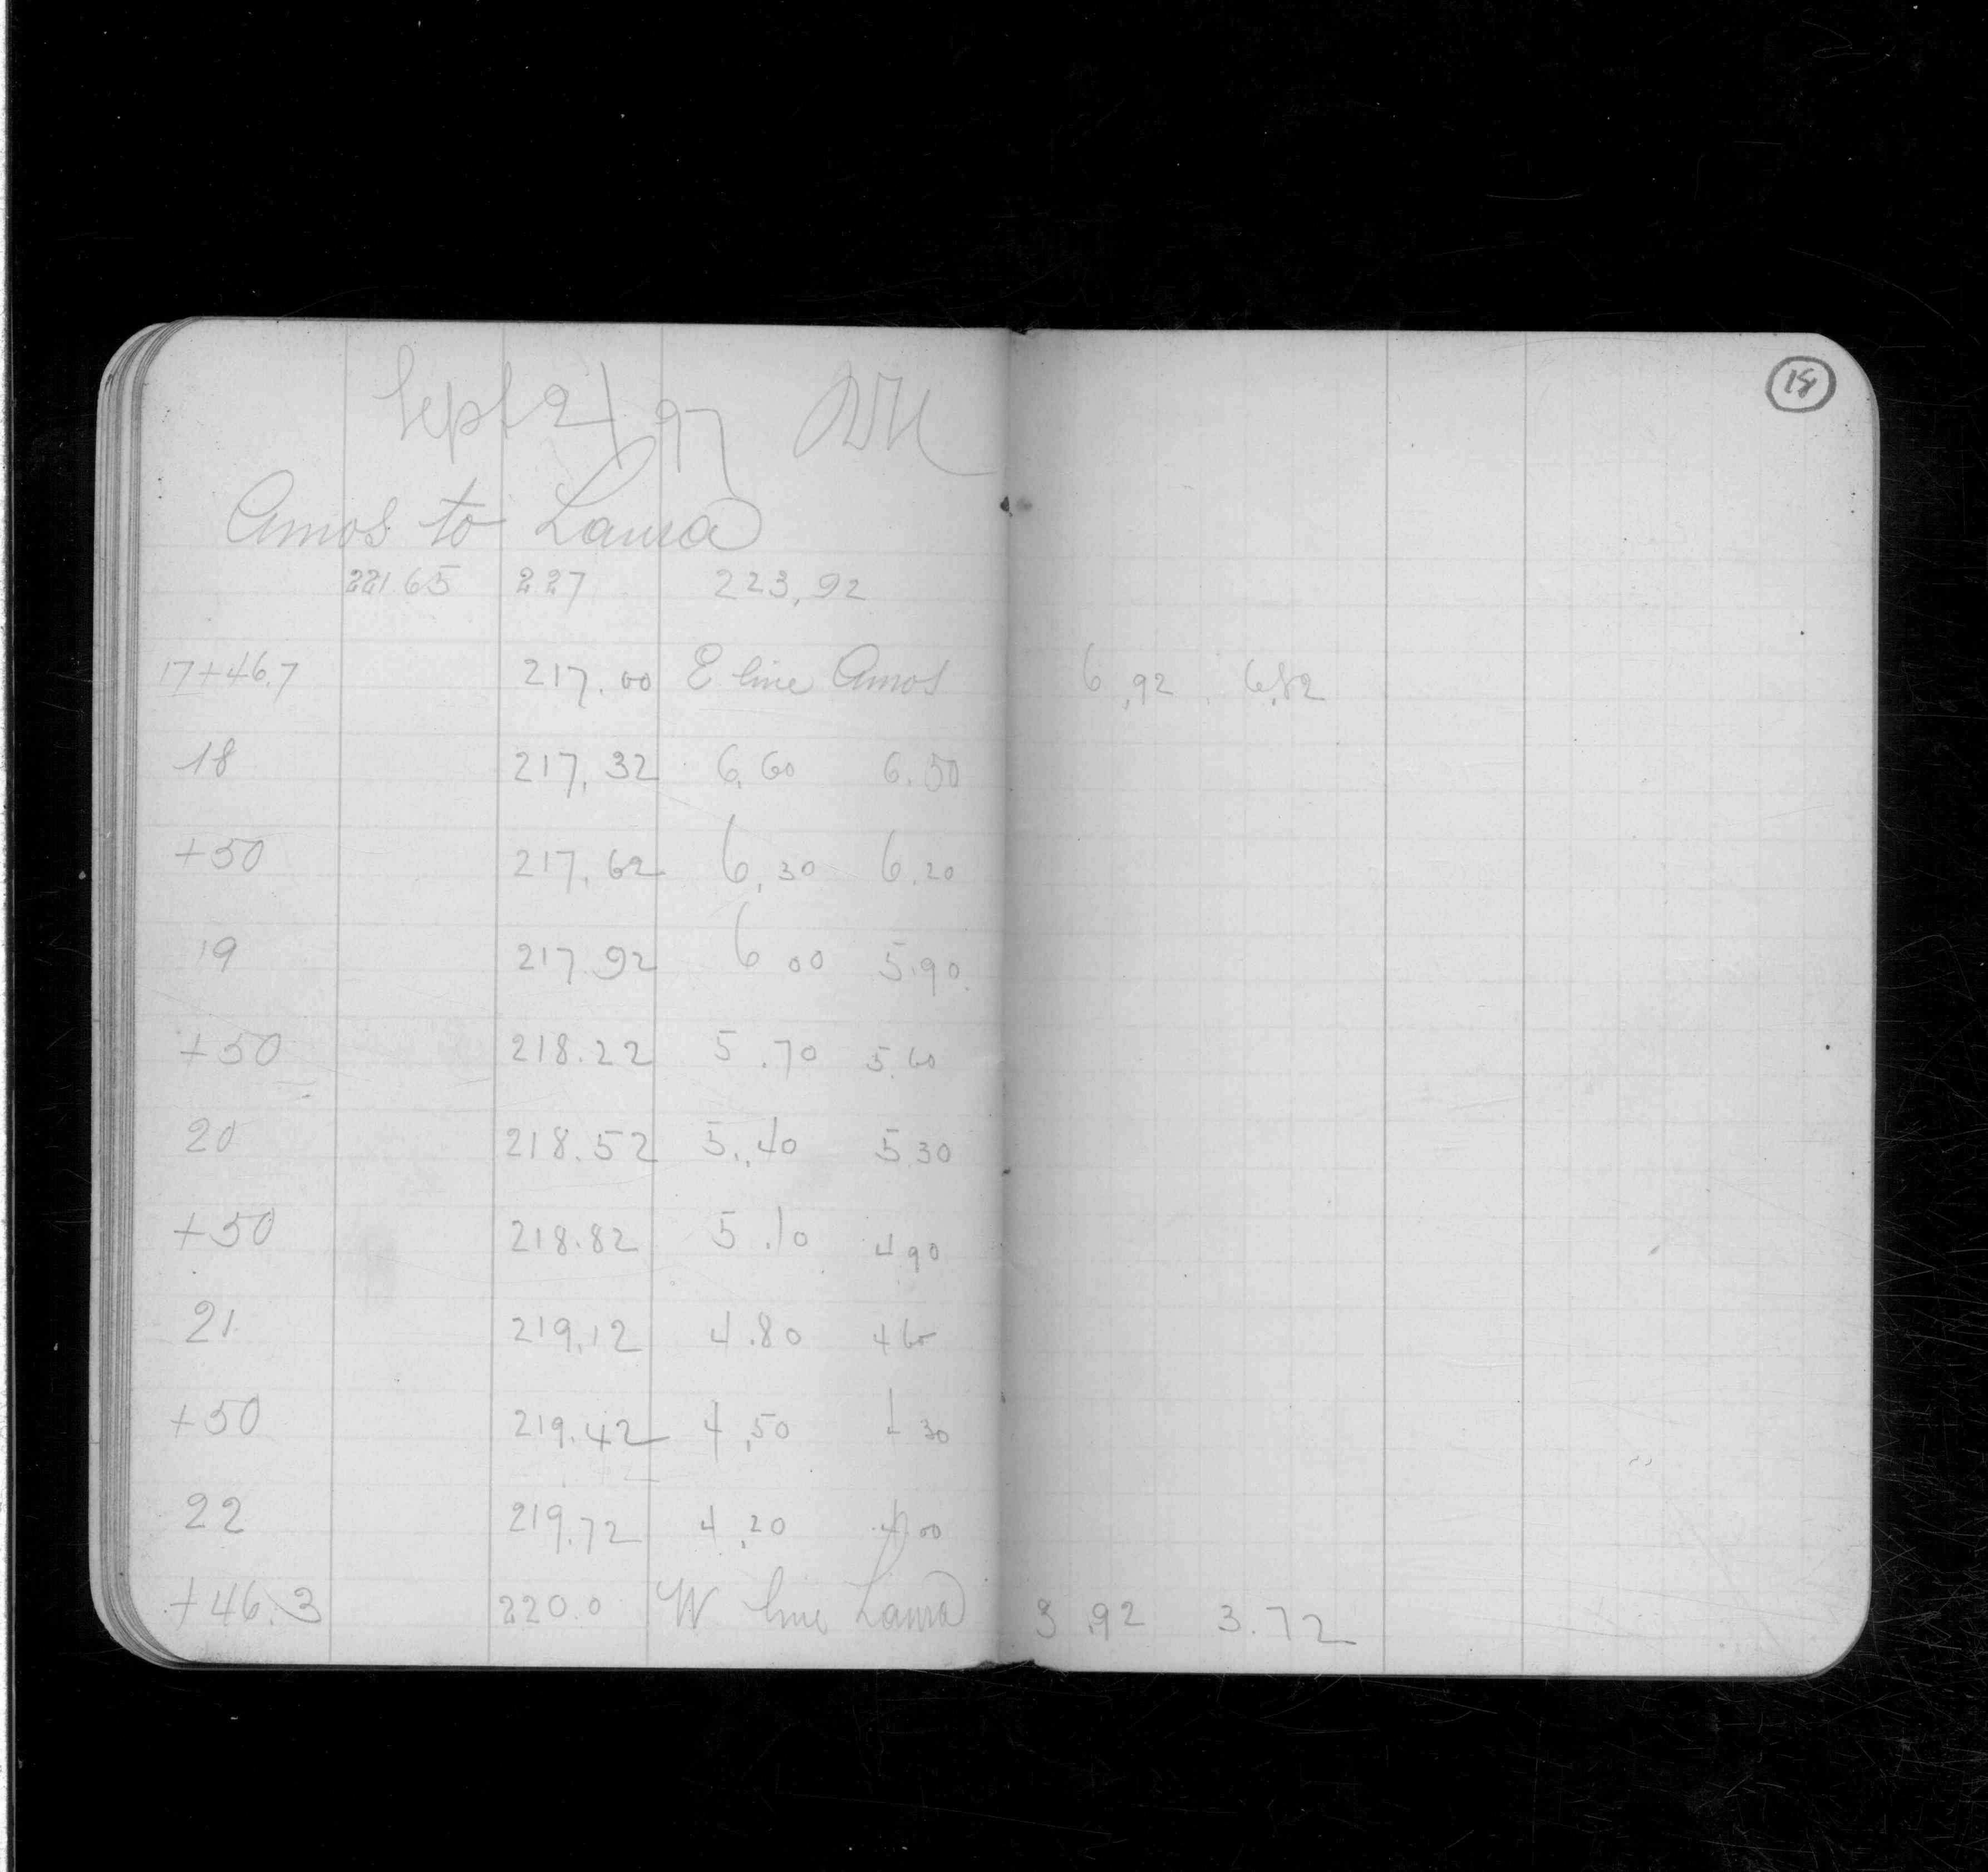 18
Sept 21/97
Amos to Laura
221.65 2.27 223.92
17+46.7 217.00 E line Amos 6.92 6.82
18 217.32 6.60 6.50
+50 217.62 6.30 6.20
19 217.92 6 00 5.90
+50 218.22 5.70 5.60
20 218.52 5.40 5.30
+50 218.82 5.10 4 90
21 219.12 4.80 4 60
+50 219.42 4.50 4 30
22 219.72 4.20 4.00
+46.3 220.0 W line Laura 3.92 3.72